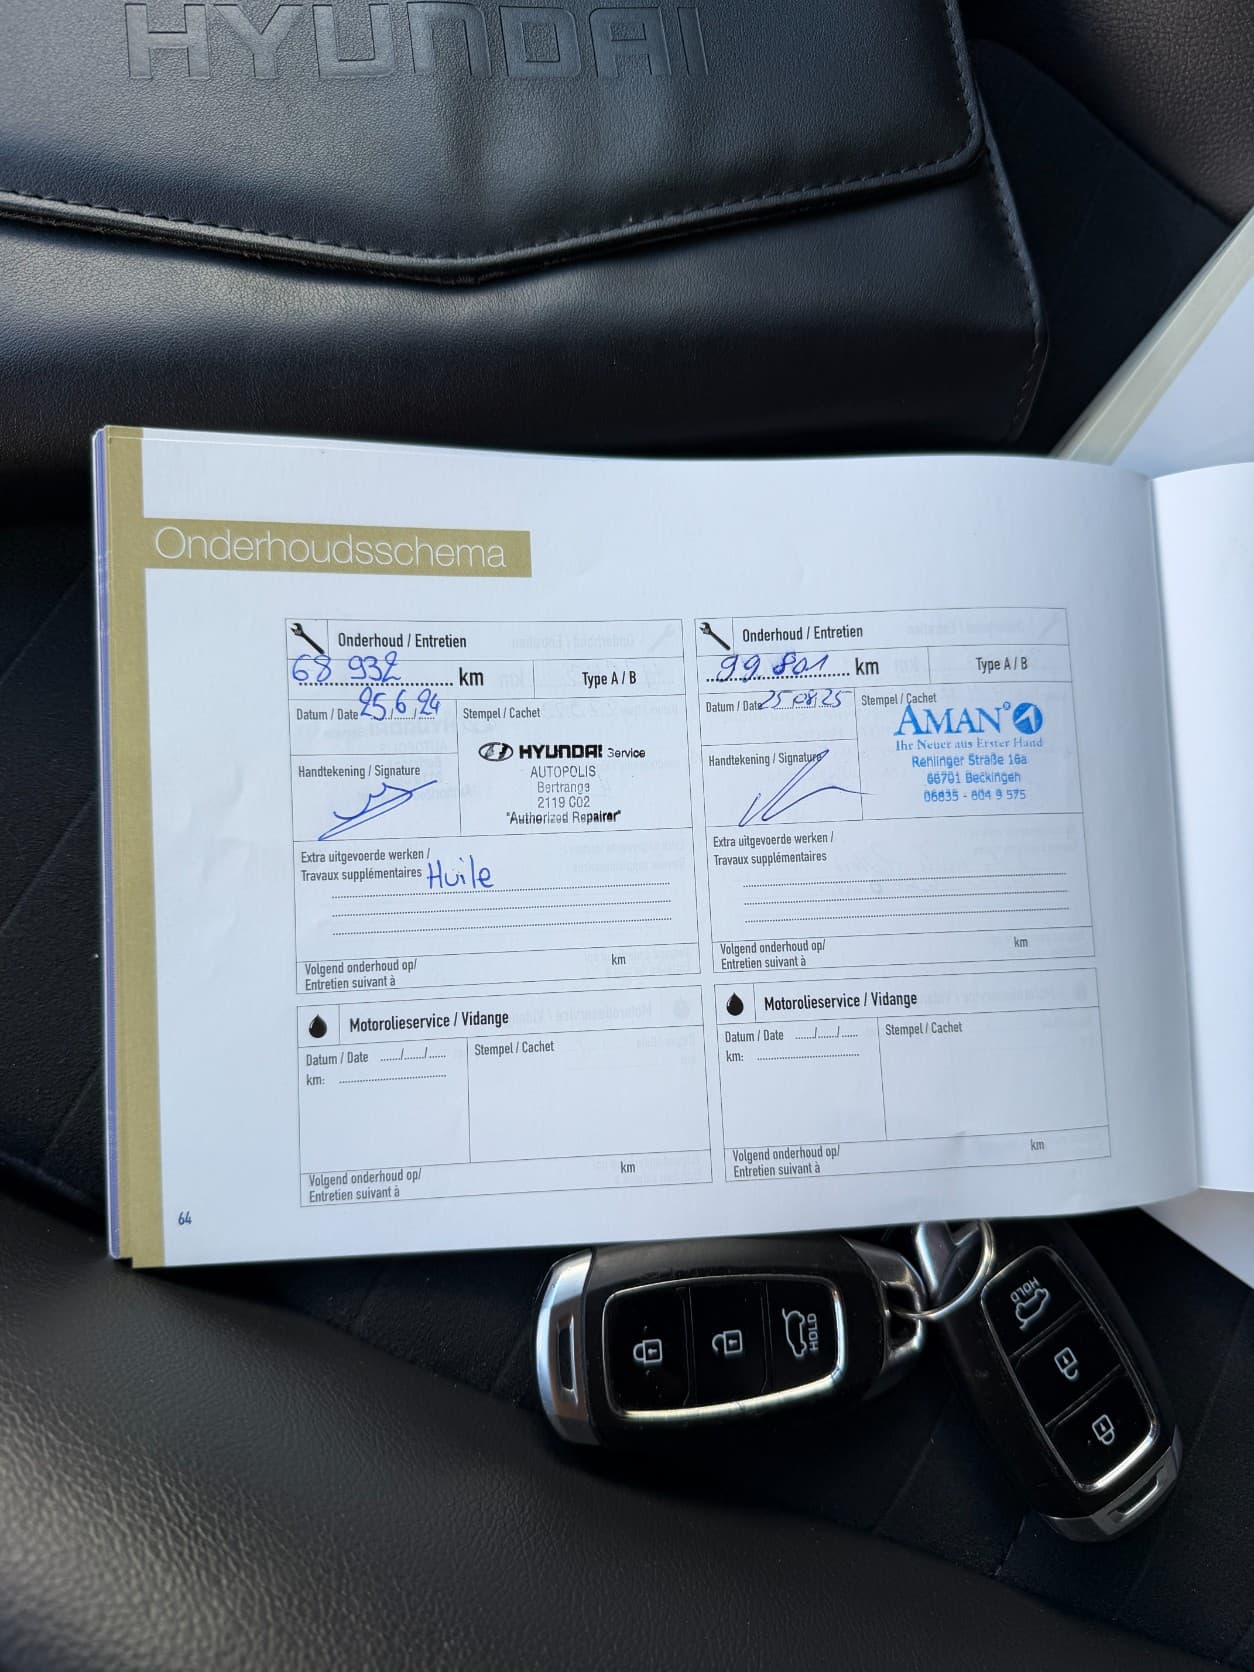 HYUNDAI
Onderhoudsschema
Onderhoud / Entretien
68 932 km
Type A / B
Datum / Date 25/6/24
Stempel / Cachet
HYUNDAI Service
AUTOPOLIS
Bertrange
2119 C02
"Authorized Repairer"
Handtekening / Signature
Extra uitgevoerde werken /
Travaux supplémentaires Huile
Volgend onderhoud op/
Entretien suivant à
km
Motorolieservice / Vidange
Datum / Date ....../....../......
km:
Stempel / Cachet
Volgend onderhoud op/
Entretien suivant à
km
Onderhoud / Entretien
99 801 km
Type A / B
Datum / Date 25/08/25
Stempel / Cachet
AMAN
Ihr Neuer aus Erster Hand
Rehlinger Straße 16a
66701 Beckingen
06835 - 604 9 575
Handtekening / Signature
Extra uitgevoerde werken /
Travaux supplémentaires
Volgend onderhoud op/
Entretien suivant à
km
Motorolieservice / Vidange
Datum / Date ....../....../......
km:
Stempel / Cachet
Volgend onderhoud op/
Entretien suivant à
km
64
HOLD
HOLD